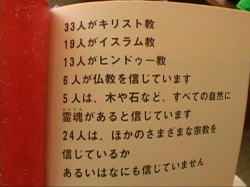 33人がキリスト教
19人がイスラム教
13人がヒンドゥー教
6人が仏教を信じています
5人は、木や石など、すべての自然に
霊魂があると信じています
24人は、ほかのさまざまな宗教を
信じているか
あるいはなにも信じていません